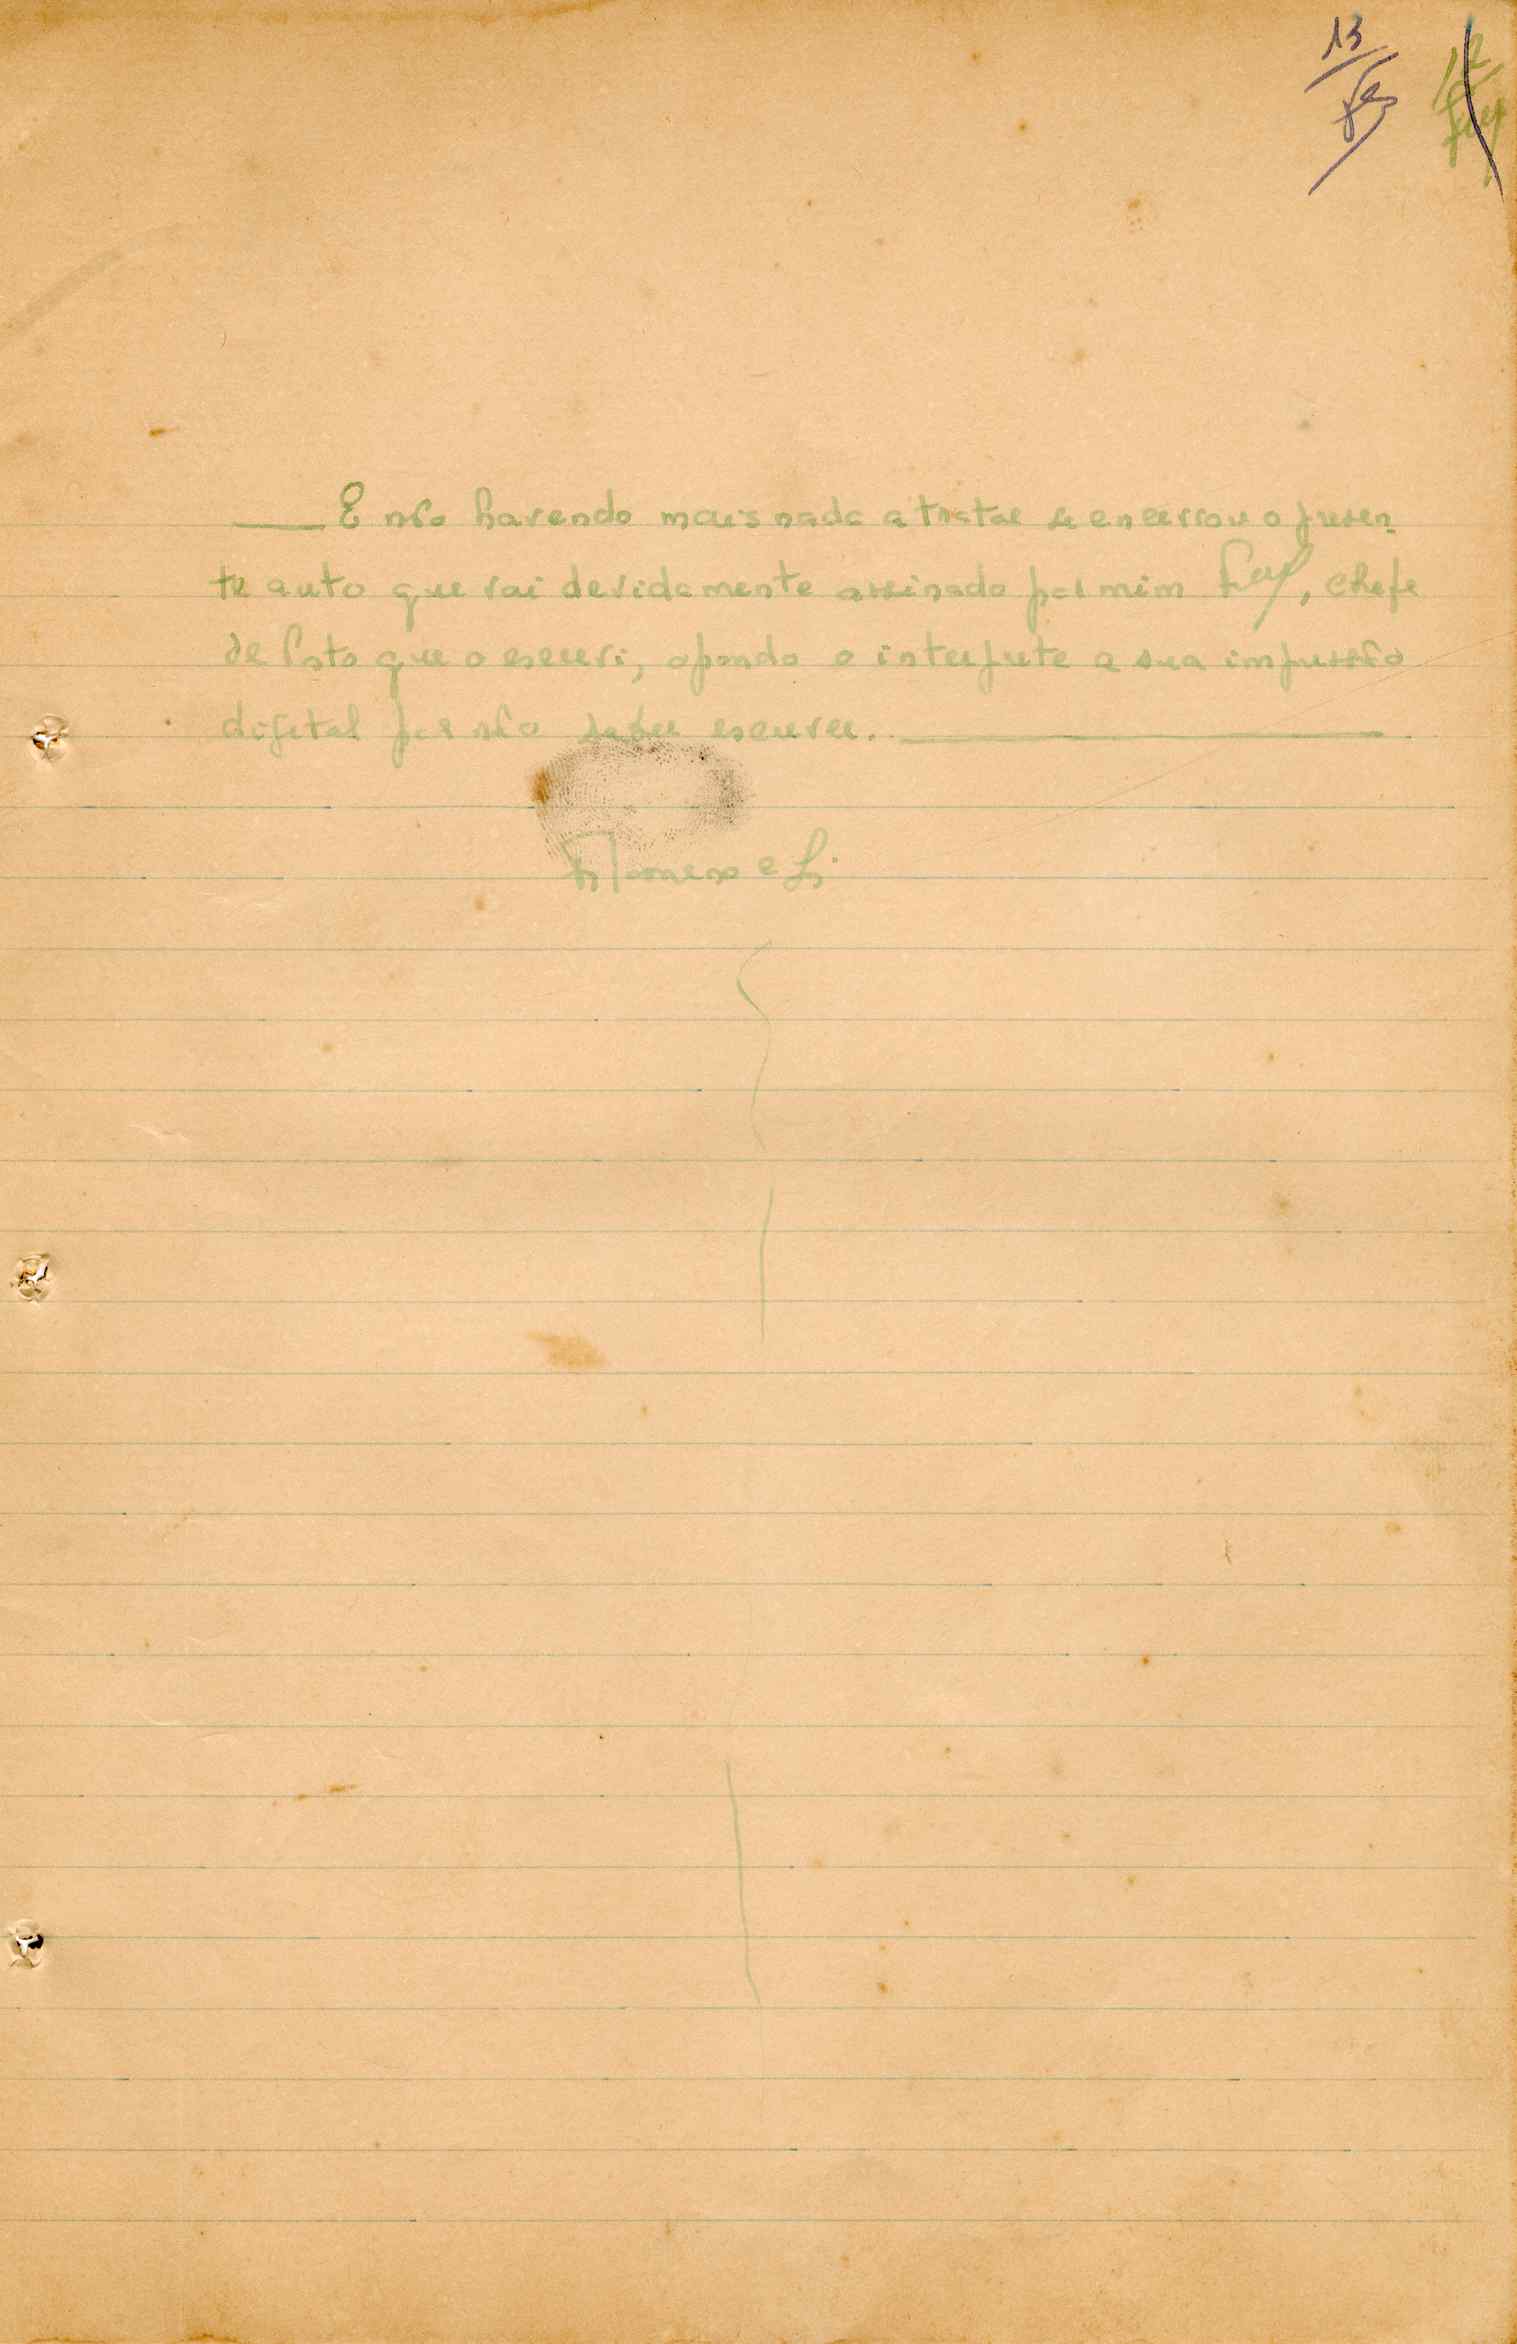 13
12
E não havendo mais nada a tratar se encerrou o presen-
te auto que vai devidamente assinado por mim, chefe
de Posto que o escrevi, apondo o interprete a sua impressão
digital por não saber escrever.